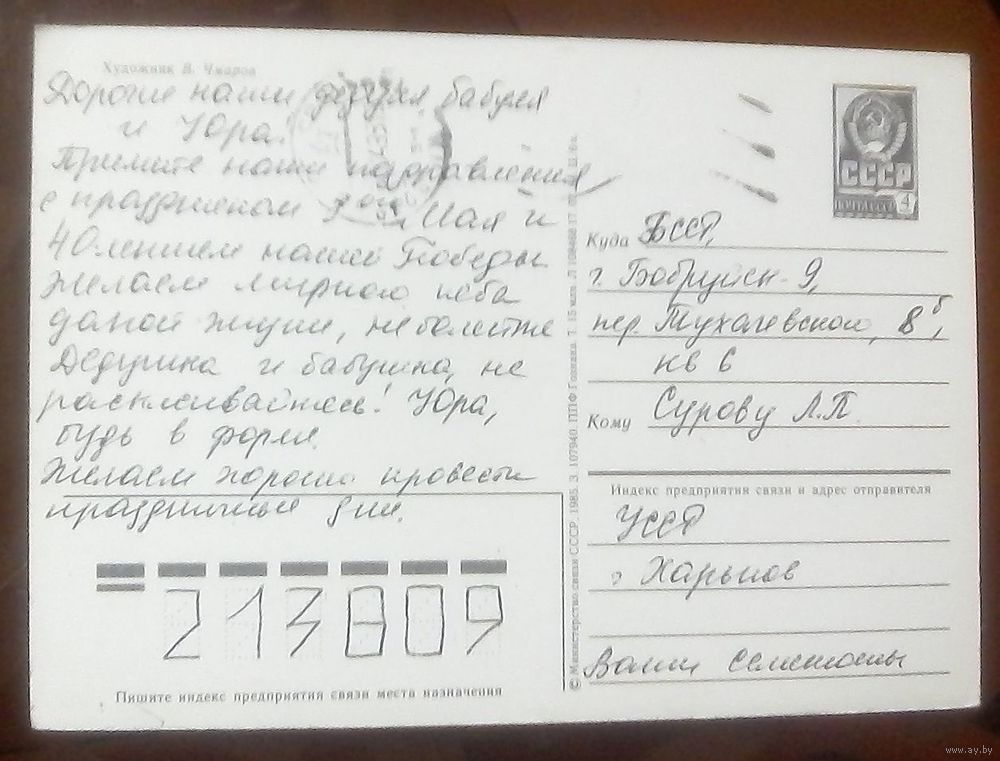 Художник В. Чмаров
Дорогие наши дедуля, бабуля
и Юра!
Примите наши поздравления
с праздником 9 Мая и
40-летием нашей Победы
Желаем мирного неба
долгой жизни, не болейте
Дедушка и бабушка, не
расклеивайтесь! Юра,
будь в форме.
Желаем хорошо провести
праздничные дни.
213809
Пишите индекс предприятия связи места назначения
© Министерство связи СССР. 1985. З. 107940. ППФ Гознака.
СССР
ПОЧТА СССР
4
Куда БССР,
г. Бобруйск-9,
пер. Тухачевского, 8б,
кв 6
Кому Сурову Л.П.
Индекс предприятия связи и адрес отправителя
УССР
г Харьков
Ваши
www.ay.by